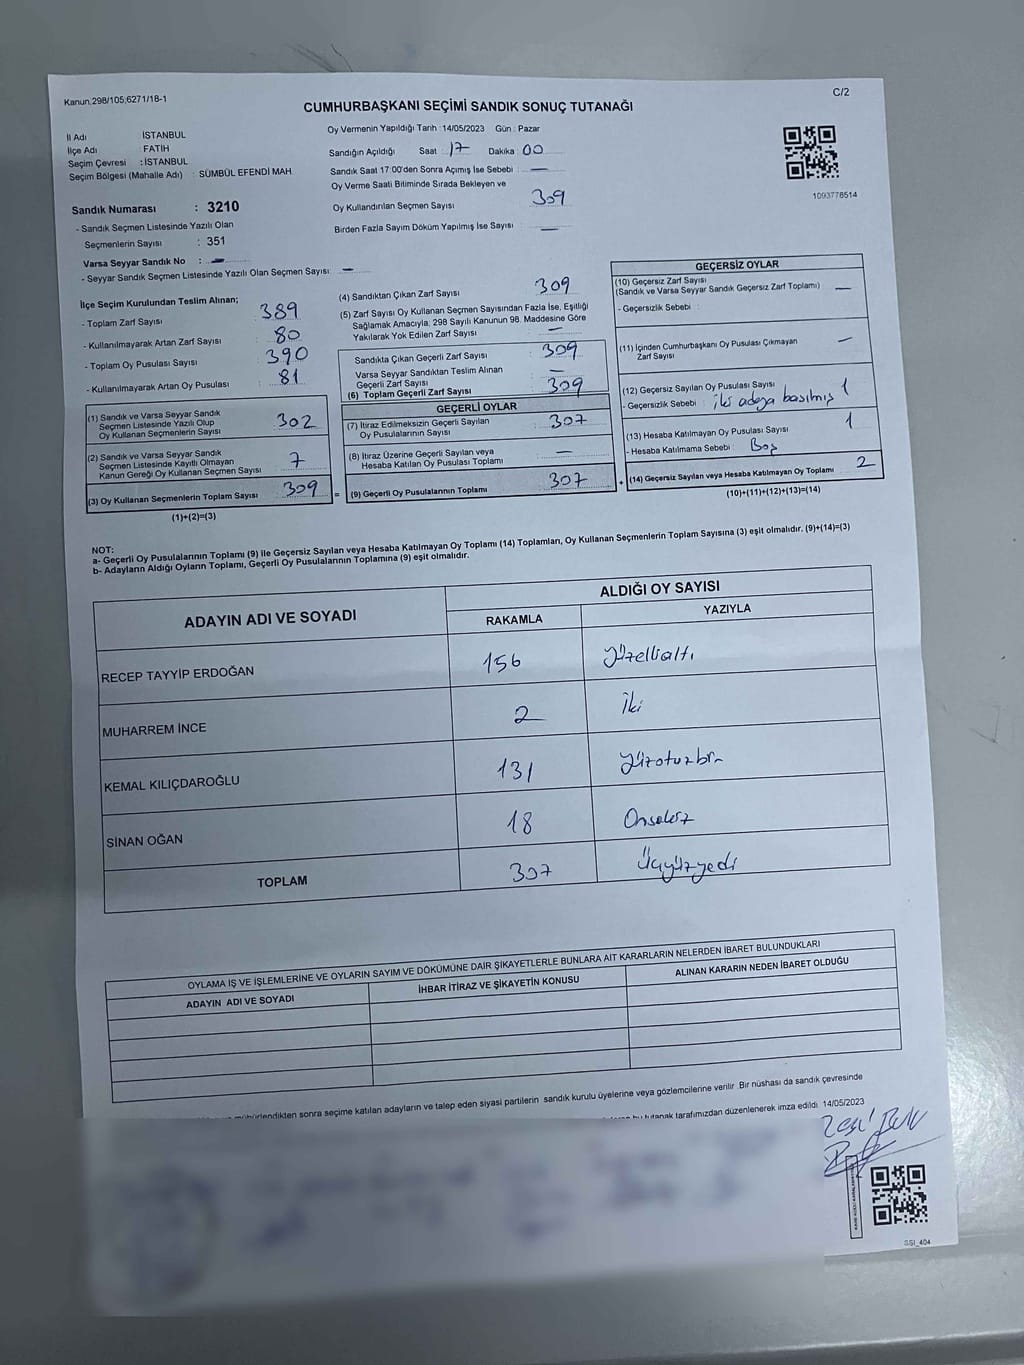 Kanun.298/105;6271/18-1
C/2
CUMHURBAŞKANI SEÇİMİ SANDIK SONUÇ TUTANAĞI
İl Adı İSTANBUL
İlçe Adı FATİH
Seçim Çevresi : İSTANBUL
Seçim Bölgesi (Mahalle Adı) : SÜMBÜL EFENDİ MAH
Sandık Numarası : 3210
- Sandık Seçmen Listesinde Yazılı Olan
Seçmenlerin Sayısı : 351
Varsa Seyyar Sandık No : -
- Seyyar Sandık Seçmen Listesinde Yazılı Olan Seçmen Sayısı: -
Oy Vermenin Yapıldığı Tarih :14/05/2023 Gün : Pazar
Sandığın Açıldığı Saat 17 Dakika 00
Sandık Saat 17:00'den Sonra Açımış İse Sebebi : -
Oy Verme Saati Bitiminde Sırada Bekleyen ve
Oy Kullandırılan Seçmen Sayısı 309
Birden Fazla Sayım Döküm Yapılmış İse Sayısı : -
1093778514
İlçe Seçim Kurulundan Teslim Alınan;
- Toplam Zarf Sayısı : 389
- Kullanılmayarak Artan Zarf Sayısı : 80
- Toplam Oy Pusulası Sayısı : 390
- Kullanılmayarak Artan Oy Pusulası : 81
(1) Sandık ve Varsa Seyyar Sandık
Seçmen Listesinde Yazılı Olup
Oy Kullanan Seçmenlerin Sayısı : 302
(2) Sandık ve Varsa Seyyar Sandık
Seçmen Listesinde Kayıtlı Olmayan
Kanun Gereği Oy Kullanan Seçmen Sayısı : 7
(3) Oy Kullanan Seçmenlerin Toplam Sayısı : 309
(1)+(2)=(3)
=
(4) Sandıktan Çıkan Zarf Sayısı : 309
(5) Zarf Sayısı Oy Kullanan Seçmen Sayısından Fazla İse, Eşitliği
Sağlamak Amacıyla; 298 Sayılı Kanunun 98. Maddesine Göre
Yakılarak Yok Edilen Zarf Sayısı : -
Sandıkta Çıkan Geçerli Zarf Sayısı : 309
Varsa Seyyar Sandıktan Teslim Alınan
Geçerli Zarf Sayısı : -
(6) Toplam Geçerli Zarf Sayısı : 309
GEÇERLİ OYLAR
(7) İtiraz Edilmeksizin Geçerli Sayılan
Oy Pusulalarının Sayısı : 307
(8) İtiraz Üzerine Geçerli Sayılan veya
Hesaba Katılan Oy Pusulası Toplamı : -
(9) Geçerli Oy Pusulalarının Toplamı : 307
+
GEÇERSİZ OYLAR
(10) Geçersiz Zarf Sayısı
(Sandık ve Varsa Seyyar Sandık Geçersiz Zarf Toplamı) : -
- Geçersizlik Sebebi :
(11) İçinden Cumhurbaşkanı Oy Pusulası Çıkmayan
Zarf Sayısı : -
(12) Geçersiz Sayılan Oy Pusulası Sayısı : 1
- Geçersizlik Sebebi : iki adaya basılmış
(13) Hesaba Katılmayan Oy Pusulası Sayısı : 1
- Hesaba Katılmama Sebebi : Boş
(14) Geçersiz Sayılan veya Hesaba Katılmayan Oy Toplamı 2
(10)+(11)+(12)+(13)=(14)
NOT:
a- Geçerli Oy Pusulalarının Toplamı (9) ile Geçersiz Sayılan veya Hesaba Katılmayan Oy Toplamı (14) Toplamları, Oy Kullanan Seçmenlerin Toplam Sayısına (3) eşit olmalıdır. (9)+(14)=(3)
b- Adayların Aldığı Oyların Toplamı, Geçerli Oy Pusulalarının Toplamına (9) eşit olmalıdır.
ADAYIN ADI VE SOYADI
ALDIĞI OY SAYISI
RAKAMLA YAZIYLA
RECEP TAYYİP ERDOĞAN 156 Yüzellialtı
MUHARREM İNCE 2 İki
KEMAL KILIÇDAROĞLU 131 Yüzotuzbir
SİNAN OĞAN 18 Onsekiz
TOPLAM 307 Üçyüzyedi
OYLAMA İŞ VE İŞLEMLERİNE VE OYLARIN SAYIM VE DÖKÜMÜNE DAİR ŞİKAYETLERLE BUNLARA AİT KARARLARIN NELERDEN İBARET BULUNDUKLARI
ADAYIN ADI VE SOYADI İHBAR İTİRAZ VE ŞİKAYETİN KONUSU ALINAN KARARIN NEDEN İBARET OLDUĞU
mühürlendikten sonra seçime katılan adayların ve talep eden siyasi partilerin sandık kurulu üyelerine veya gözlemcilerine verilir. Bir nüshası da sandık çevresinde
bu tutanak tarafımızdan düzenlenerek imza edildi. 14/05/2023
SSI_404